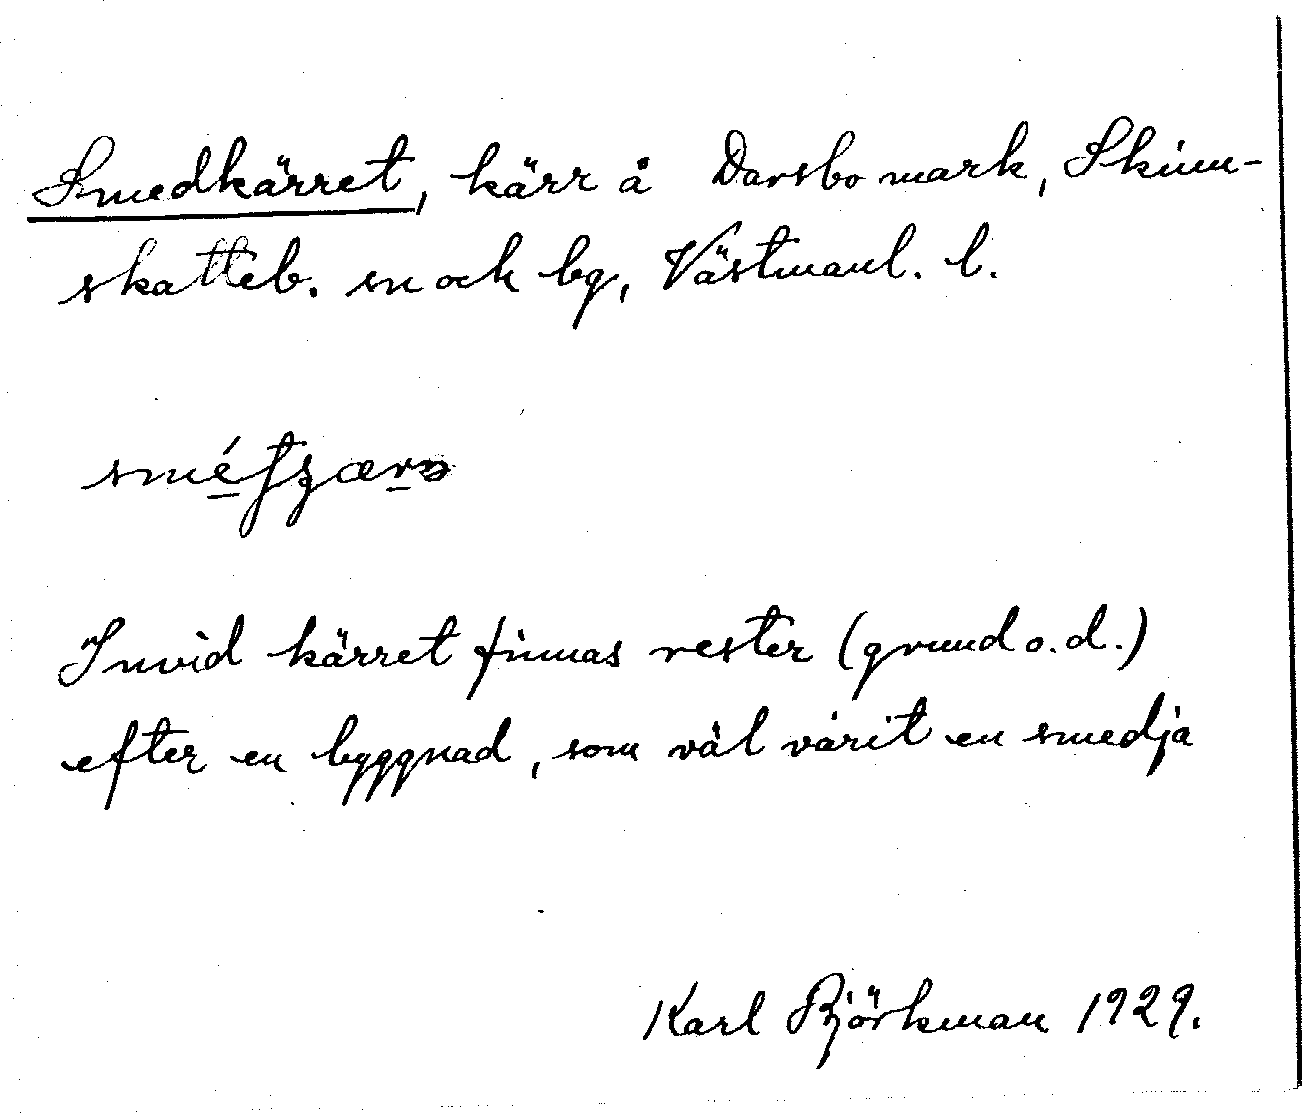 Smedkärret, kärr å Darsbo mark, Skinn-
skatteb. sn och bg, Västmanl. l.
Invid kärret finnas rester (grund o.d.)
efter en byggnad, som väl varit en smedja
Karl Björkman 1929.